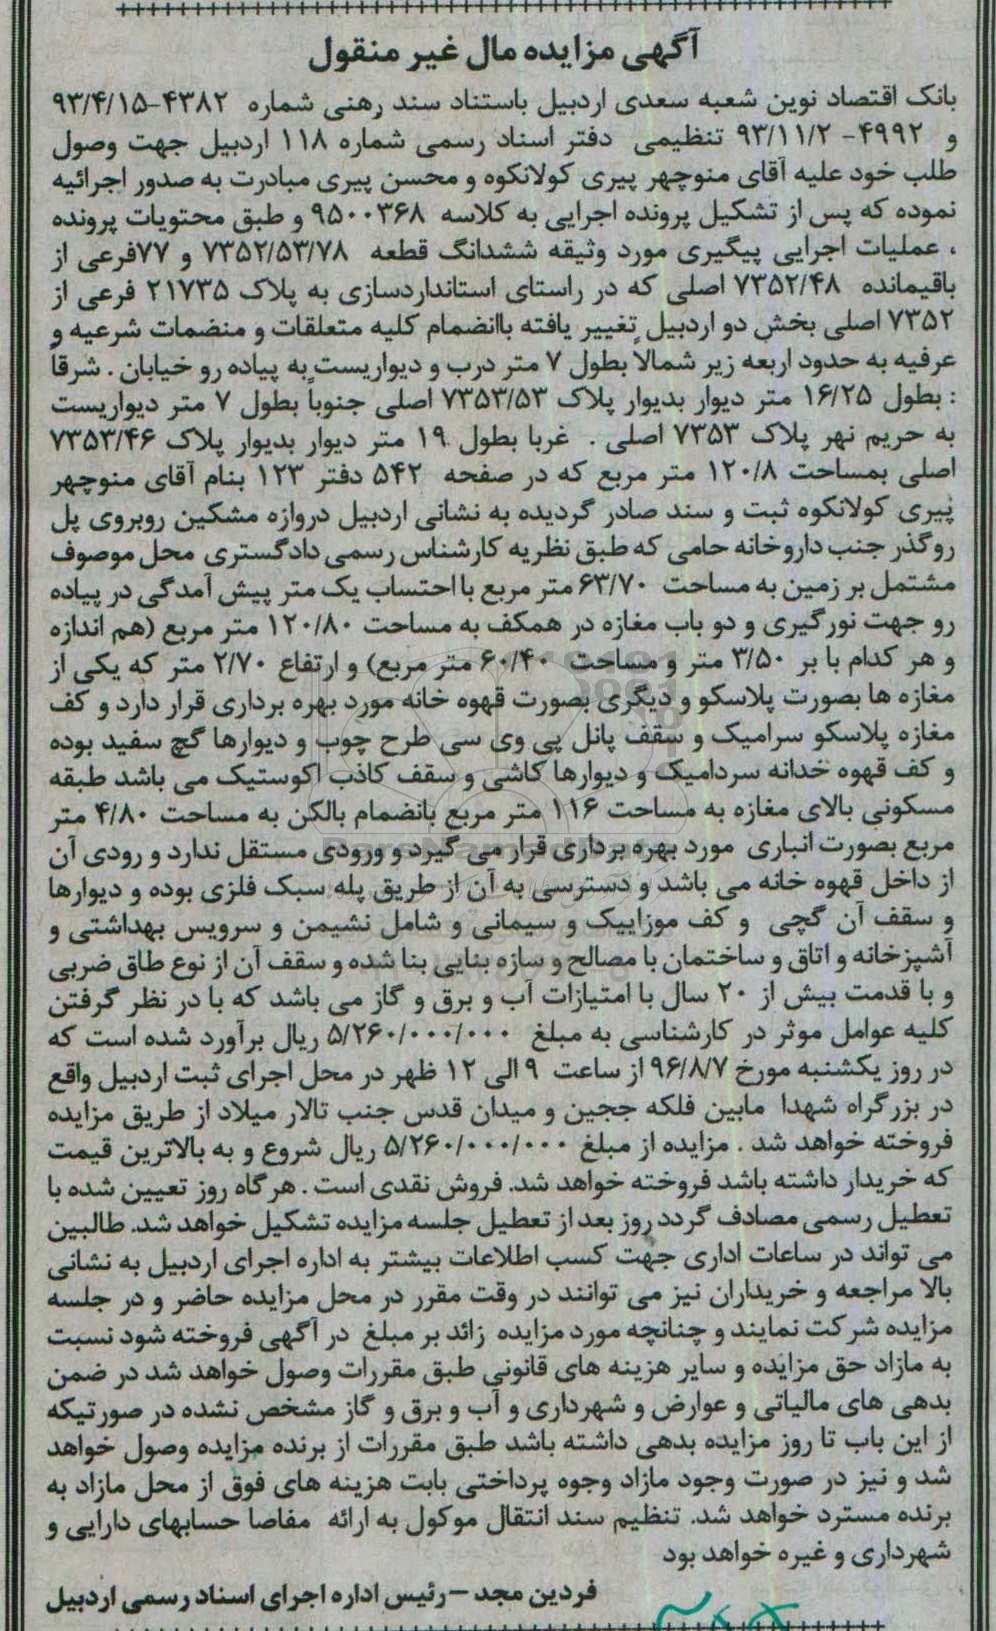 آگهی مزایده مال غیر منقول
بانک اقتصاد نوین شعبه سعدی اردبیل باستناد سند رهنی شماره ۴۳۸۲-۹۳/۴/۱۵
و ۴۹۹۲- ۹۳/۱۱/۲ تنظیمی دفتر اسناد رسمی شماره ۱۱۸ اردبیل جهت وصول
طلب خود علیه آقای منوچهر پیری کولانکوه و محسن پیری مبادرت به صدور اجرائیه
نموده که پس از تشکیل پرونده اجرایی به کلاسه ۹۵۰۰۳۶۸ و طبق محتویات پرونده
، عملیات اجرایی پیگیری مورد وثیقه ششدانگ قطعه ۷۳۵۲/۵۳/۷۸ و ۷۷فرعی از
باقیمانده ۷۳۵۲/۴۸ اصلی که در راستای استانداردسازی به پلاک ۲۱۷۳۵ فرعی از
۷۳۵۲ اصلی بخش دو اردبیل تغییر یافته باانضمام کلیه متعلقات و منضمات شرعیه و
عرفیه به حدود اربعه زیر شمالاً بطول ۷ متر درب و دیواریست به پیاده رو خیابان . شرقا
: بطول ۱۶/۲۵ متر دیوار بدیوار پلاک ۷۳۵۳/۵۳ اصلی جنوباً بطول ۷ متر دیواریست
به حریم نهر پلاک ۷۳۵۳ اصلی . غربا بطول ۱۹ متر دیوار بدیوار پلاک ۷۳۵۳/۴۶
اصلی بمساحت ۱۲۰/۸ متر مربع که در صفحه ۵۴۲ دفتر ۱۲۳ بنام آقای منوچهر
پیری کولانکوه ثبت و سند صادر گردیده به نشانی اردبیل دروازه مشکین روبروی پل
روگذر جنب داروخانه حامی که طبق نظریه کارشناس رسمی دادگستری محل موصوف
مشتمل بر زمین به مساحت ۶۳/۷۰ متر مربع با احتساب یک متر پیش آمدگی در پیاده
رو جهت نورگیری و دو باب مغازه در همکف به مساحت ۱۲۰/۸۰ متر مربع (هم اندازه
و هر کدام با بر ۳/۵۰ متر و مساحت ۶۰/۴۰ متر مربع) و ارتفاع ۲/۷۰ متر که یکی از
مغازه ها بصورت پلاسکو و دیگری بصورت قهوه خانه مورد بهره برداری قرار دارد و کف
مغازه پلاسکو سرامیک و سقف پانل پی وی سی طرح چوب و دیوارها گچ سفید بوده
و کف قهوه خدانه سردامیک و دیوارها کاشی و سقف کاذب اکوستیک می باشد طبقه
مسکونی بالای مغازه به مساحت ۱۱۶ متر مربع بانضمام بالکن به مساحت ۴/۸۰ متر
مربع بصورت انباری مورد بهره برداری قرار می گیرد و ورودی مستقل ندارد و رودی آن
از داخل قهوه خانه می باشد و دسترسی به آن از طریق پله سبک فلزی بوده و دیوارها
و سقف آن گچی و کف موزاییک و سیمانی و شامل نشیمن و سرویس بهداشتی و
آشپزخانه و اتاق و ساختمان با مصالح و سازه بنایی بنا شده و سقف آن از نوع طاق ضربی
و با قدمت بیش از ۲۰ سال با امتیازات آب و برق و گاز می باشد که با در نظر گرفتن
کلیه عوامل موثر در کارشناسی به مبلغ ۵/۲۶۰/۰۰۰/۰۰۰ ریال برآورد شده است که
در روز یکشنبه مورخ ۹۶/۸/۷ از ساعت ۹ الی ۱۲ ظهر در محل اجرای ثبت اردبیل واقع
در بزرگراه شهدا مابین فلکه ججین و میدان قدس جنب تالار میلاد از طریق مزایده
فروخته خواهد شد . مزایده از مبلغ ۵/۲۶۰/۰۰۰/۰۰۰ ریال شروع و به بالاترین قیمت
که خریدار داشته باشد فروخته خواهد شد. فروش نقدی است . هرگاه روز تعیین شده با
تعطیل رسمی مصادف گردد روز بعد از تعطیل جلسه مزایده تشکیل خواهد شد. طالبین
می تواند در ساعات اداری جهت کسب اطلاعات بیشتر به اداره اجرای اردبیل به نشانی
بالا مراجعه و خریداران نیز می توانند در وقت مقرر در محل مزایده حاضر و در جلسه
مزایده شرکت نمایند و چنانچه مورد مزایده زائد بر مبلغ در آگهی فروخته شود نسبت
به مازاد حق مزایده و سایر هزینه های قانونی طبق مقررات وصول خواهد شد در ضمن
بدهی های مالیاتی و عوارض و شهرداری و آب و برق و گاز مشخص نشده در صورتیکه
از این باب تا روز مزایده بدهی داشته باشد طبق مقررات از برنده مزایده وصول خواهد
شد و نیز در صورت وجود مازاد وجوه پرداختی بابت هزینه های فوق از محل مازاد به
برنده مسترد خواهد شد. تنظیم سند انتقال موکول به ارائه مفاصا حسابهای دارایی و
شهرداری و غیره خواهد بود
فردین مجد – رئیس اداره اجرای اسناد رسمی اردبیل